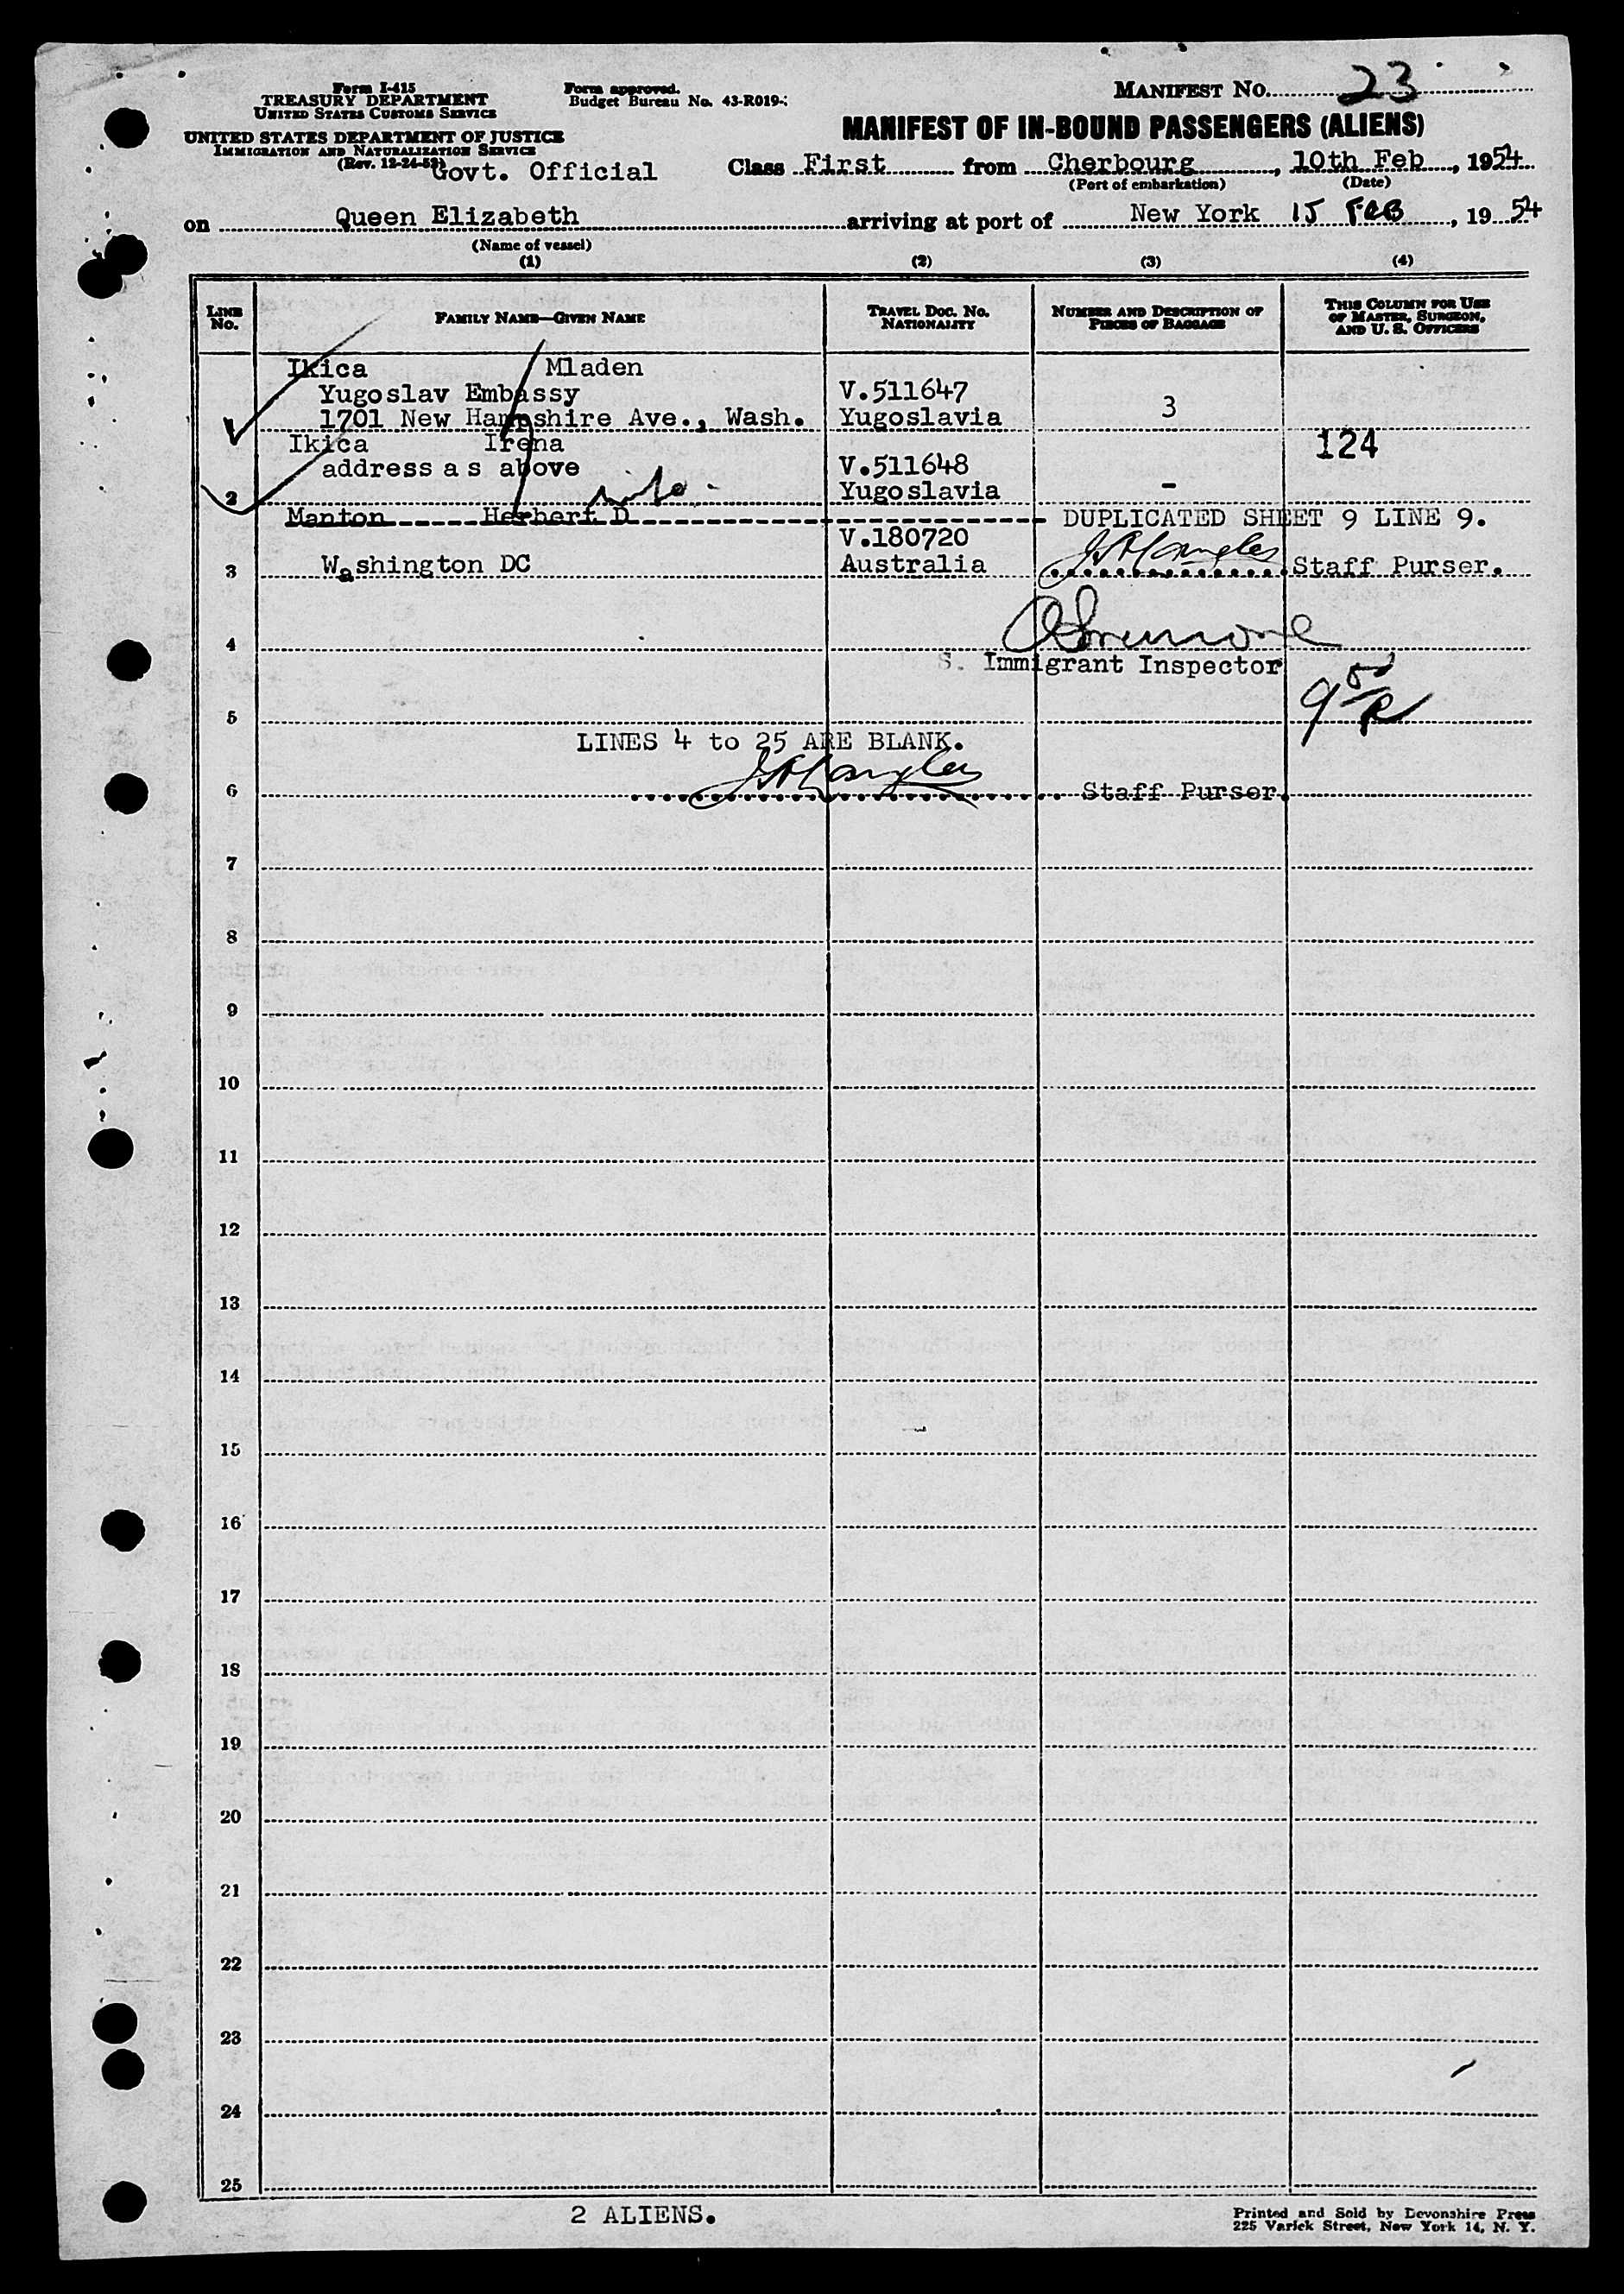 Form I-415
TREASURY DEPARTMENT
UNITED STATES CUSTOMS SERVICE
UNITED STATES DEPARTMENT OF JUSTICE
IMMIGRATION AND NATURALIZATION SERVICE
Form approved.
Budget Bureau No. 43-R019-
MANIFEST NO. 23
MANIFEST OF IN-BOUND PASSENGERS (ALIENS)
Govt. Official
Class First from Cherbourg, 10th Feb, 1954
(Port of embarkation) (Date)
on Queen Elizabeth arriving at port of New York 15 FEB, 19 54
(Name of vessel)
(1) (2) (3) (4)
LINE No.
FAMILY NAME—GIVEN NAME
TRAVEL DOC. NO. NATIONALITY
NUMBER AND DESCRIPTION OF PIECES OF BAGGAGE
THIS COLUMN FOR USE OF MASTER, SURGEON, AND U. S. OFFICERS
Ikica Mladen
Yugoslav Embassy V.511647
1 1701 New Hampshire Ave., Wash. Yugoslavia 3
Ikica Irena 124
address a s above V.511648
2 wife Yugoslavia -
Manton Herbert D DUPLICATED SHEET 9 LINE 9.
V.180720
3 Washington DC Australia Staff Purser.
4
S. Immigrant Inspector
5
LINES 4 to 25 ARE BLANK.
6 Staff Purser.
7
8
9
10
11
12
13
14
15
16
17
18
19
20
21
22
23
24
25
2 ALIENS.
Printed and Sold by Devonshire Press
225 Varick Street, New York 14, N. Y.